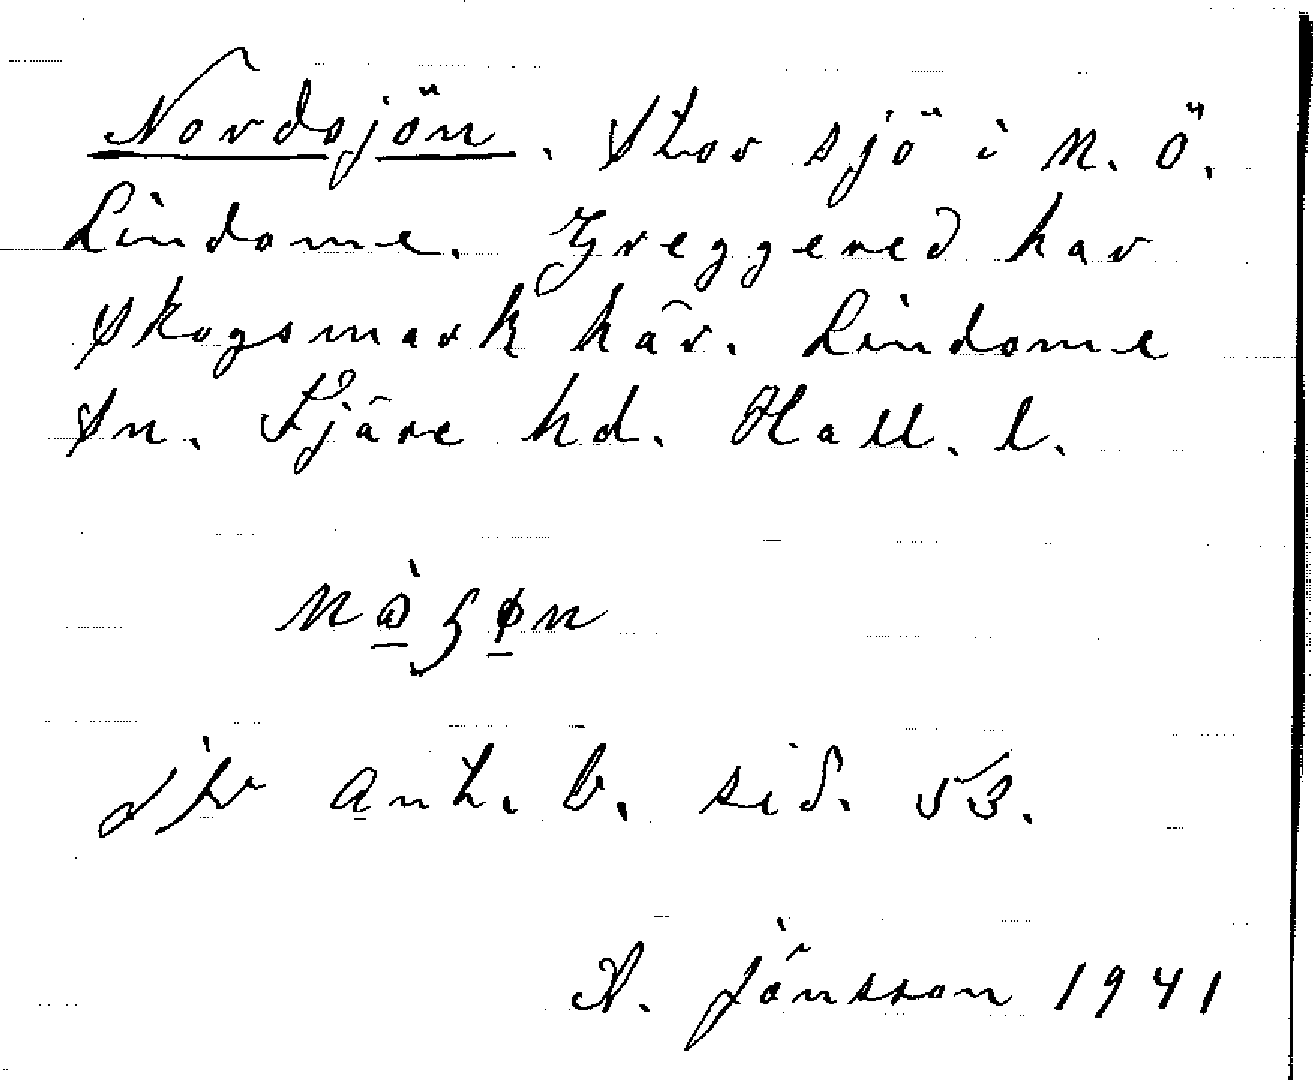 Nordsjön. Stor sjö i n. ö.
Lindome. Greggered har
skogsmark här. Lindome
sn. Fjäre hd. Hall. l.
jfr ant. b. sid. 53.
A. Jönsson 1941